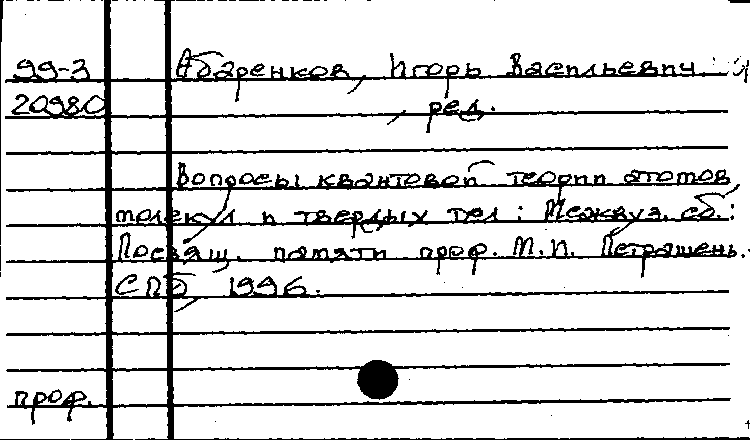 99-3 Абаренков, Игорь Васильевич.
20980 , ред.
Вопросы квантовой теории атомов,
молекул и твердых тел : Межвуз. сб. :
Посвящ. памяти проф. М.И. Петрашень.
СПб, 1996.
проф.